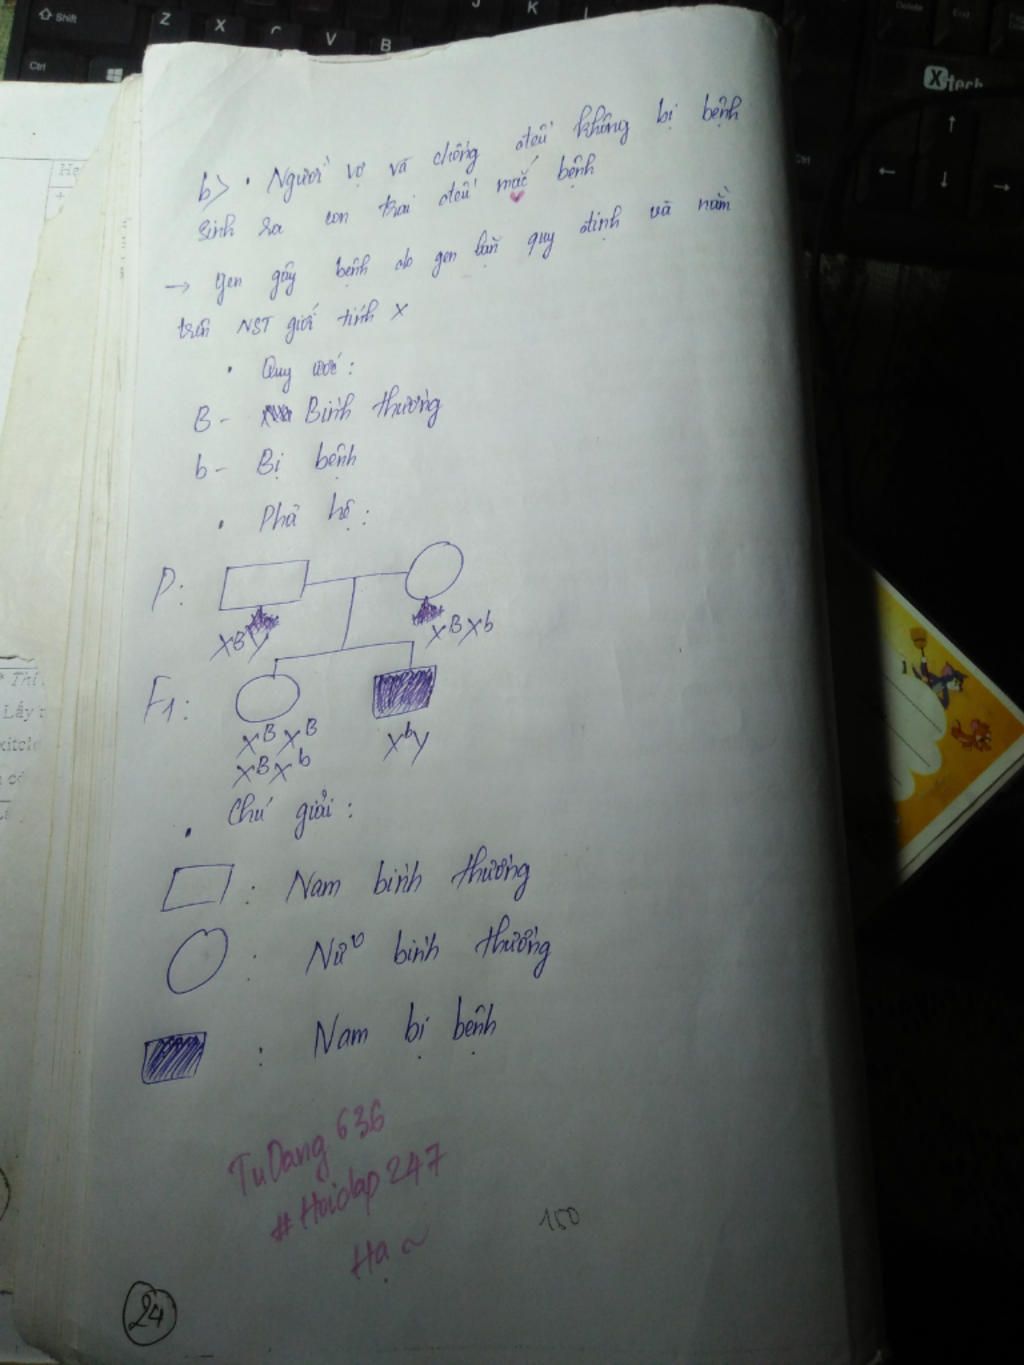 Shift
Z
X
C
V
B
J
K
L
Ctrl
Xtech
b) • Người vợ và chồng đều không bị bệnh
sinh ra con trai đều mắc bệnh
→ Gen gây bệnh do gen lặn quy định và nằm
trên NST giới tính X
• Quy ước:
B- Bình thường
b- Bị bệnh
• Phả hệ:
P:
XBY
XBXb
F1:
XBXB
XBXb
XbY
• Chú giải:
: Nam bình thường
: Nữ bình thường
: Nam bị bệnh
TuDang636
#Hoidap247
Hạ ~
150
24